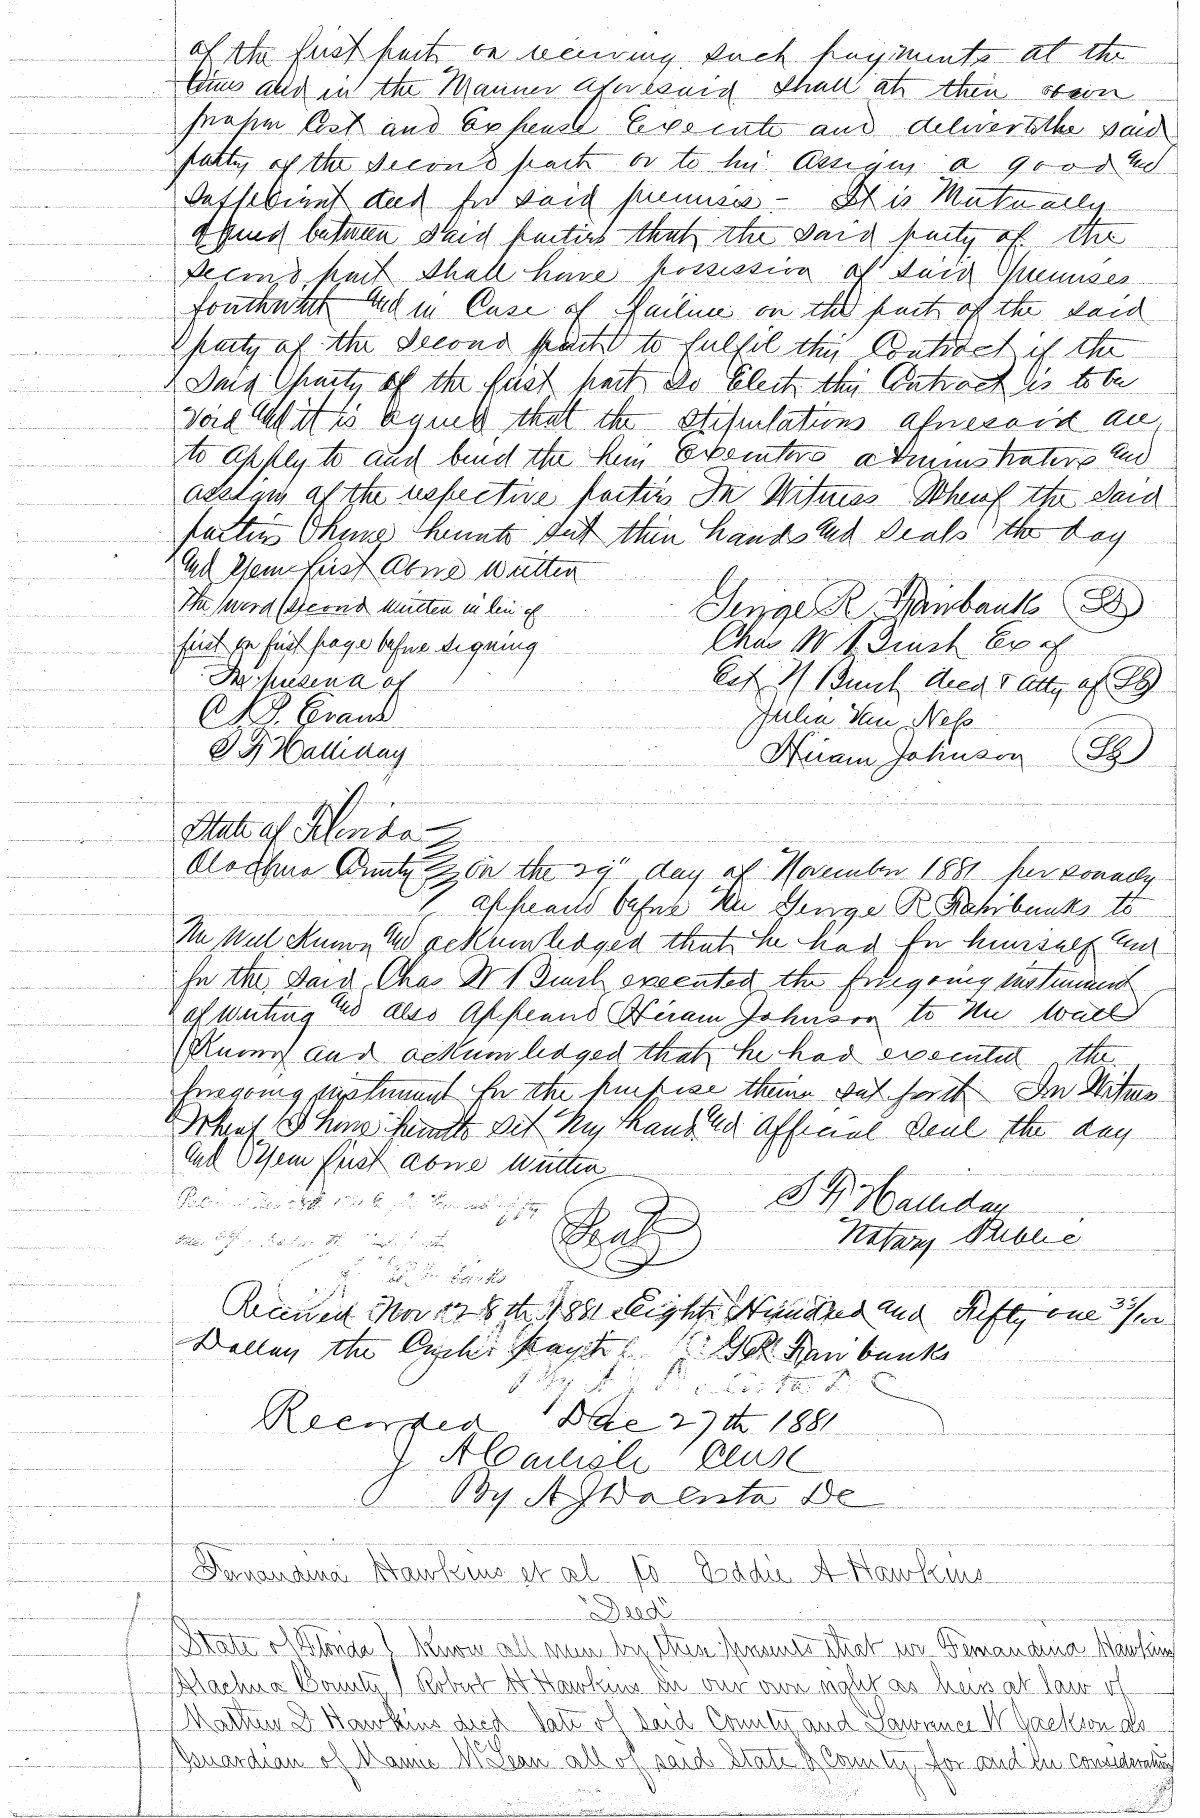 of the first part on receiving such payments at the
times and in the Manner aforesaid shall at their own
proper Cost and Expense Execute and deliver to the said
party of the second part or to his Assigns a good and
Sufficient deed for said premises - It is Mutually
agreed between said parties that the said party of the
second part shall have possession of said premises
forthwith and in Case of failure on the part of the said
party of the Second part to fulfil this Contract if the
Said party of the first part so Elect this Contract is to be
void and it is agreed that the stipulations aforesaid are
to apply to and bind the heirs Executors administrators and
assigns of the respective parties In Witness Whereof the Said
parties have hereunto set their hands and seals the day
and Year first above written
The word second written in lieu of
first on first page before signing
In presence of
C. P. Evans
S F Halliday
George R Fairbanks LS
Chas W Bush Ex of
Est N Bush decd & Atty of LS
Julia Van Ness
Hiram Johnson LS
State of Florida
Alachua County on the 29" day of November 1881 personally
appeared before Me George R Fairbanks to
Me Well Known and acknowledged that he had for himself and
for the said Chas W Bush executed the foregoing instrument
of writing and also Appeared Hiram Johnson to Me Well
Known and acknowledged that he had executed the
foregoing instrument for the purpose therein set forth In Witness
Whereof I have hereunto set my hand and official Seal the day
and Year first above Written
S F Halliday
Seal
Notary Public
Received Nov 28th 1881 Eight Hundred and Fifty one 35/100
Dollars the Cash payt G R Fairbanks
Recorded Dec 27th 1881
J A Carlisle Clerk
By A J DaCosta DC
Fernandina Hawkins et al to Eddie A Hawkins
"Deed"
State of Florida } Know all men by these presents that we Fernandina Hawkins
Alachua County } Robert H Hawkins in our own right as heirs at law of
Mathew D Hawkins decd late of said County and Lawrence W Jackson as
Guardian of Mamie McLean all of said State & County for and in consideration